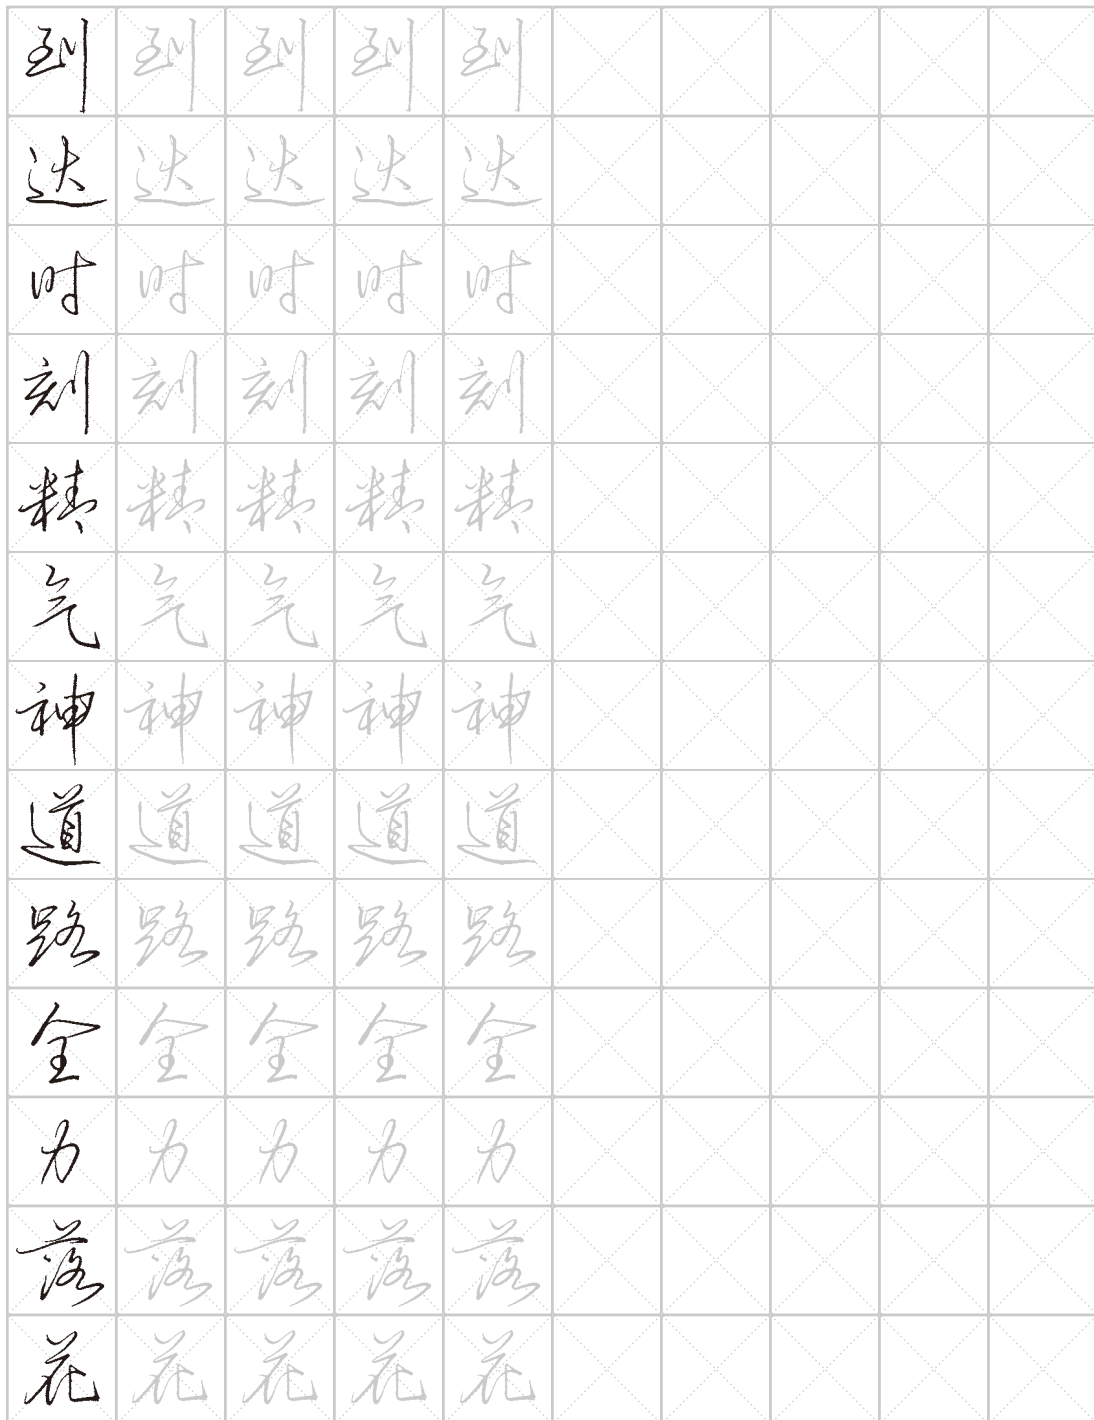 到到到到到
达达达达达
时时时时时
刻刻刻刻刻
精精精精精
气气气气气
神神神神神
道道道道道
路路路路路
全全全全全
力力力力力
落落落落落
花花花花花